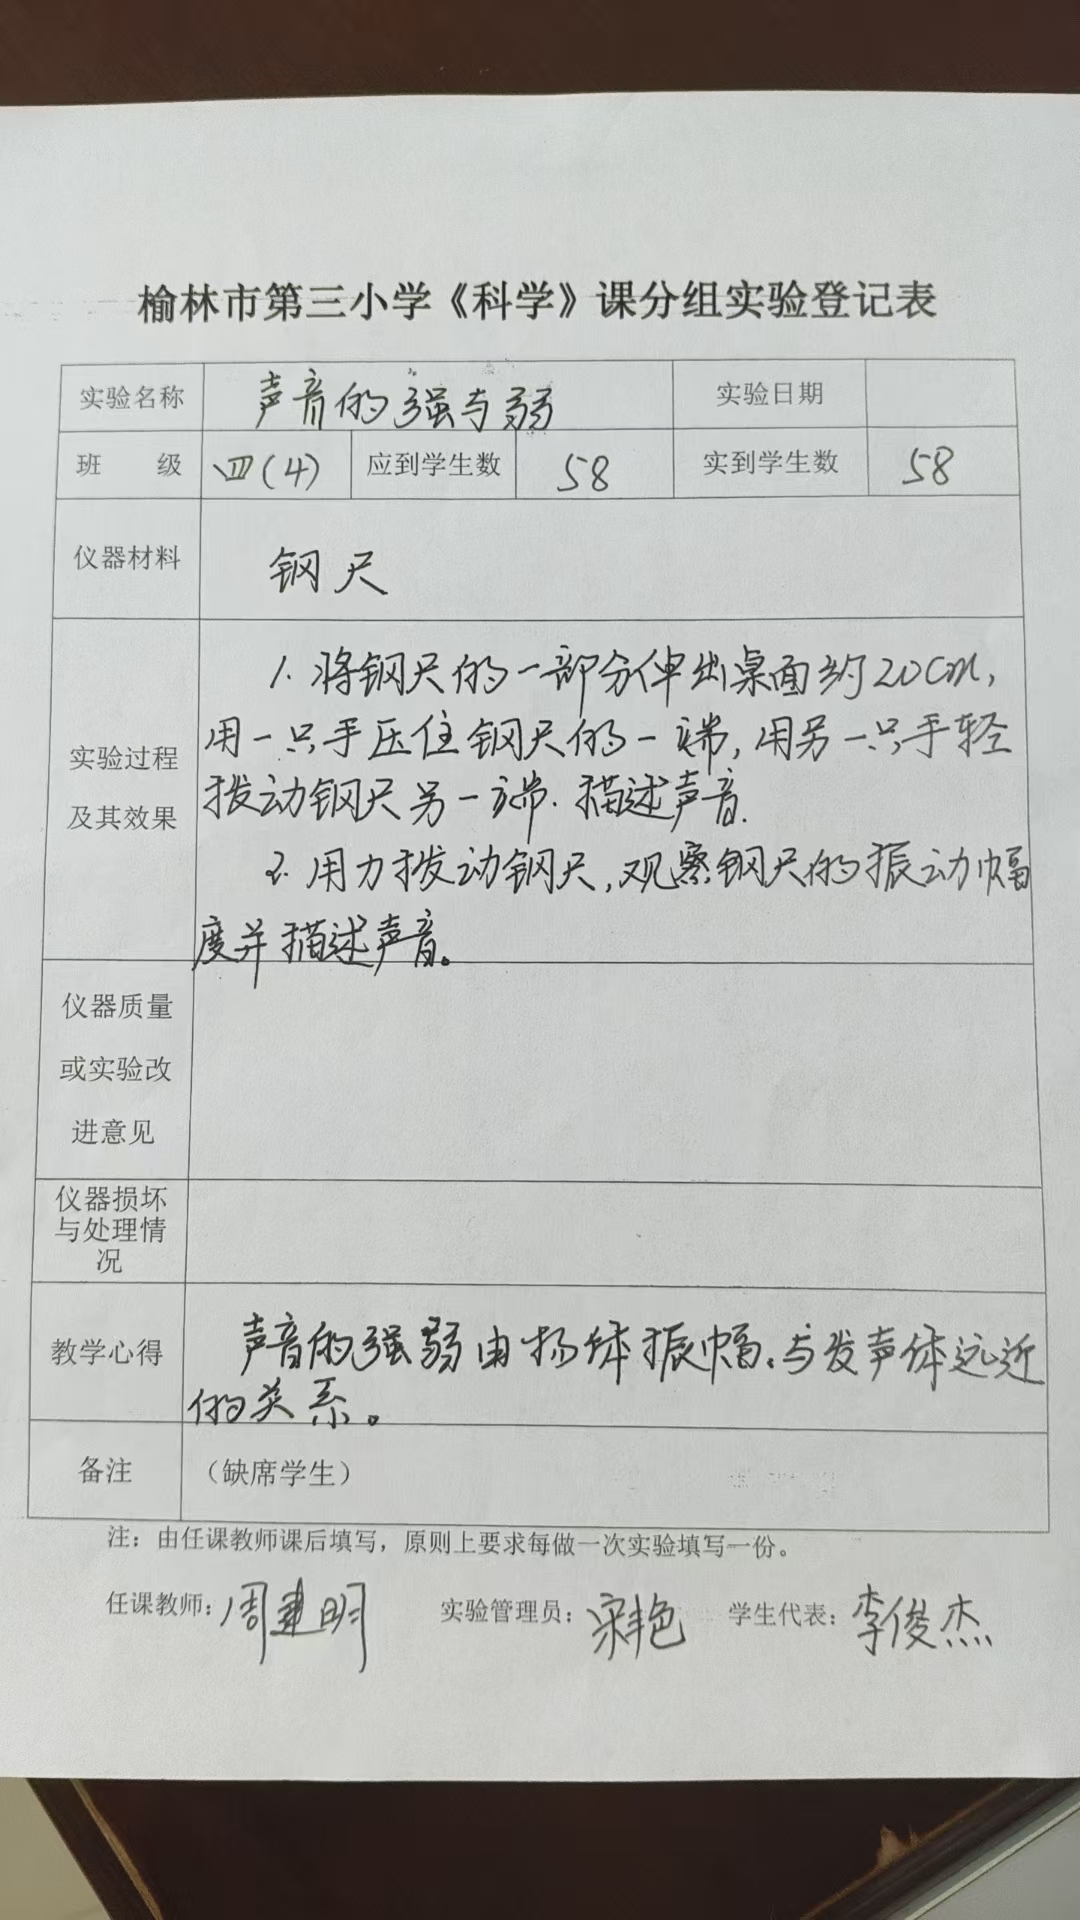 榆林市第三小学《科学》课分组实验登记表
实验名称 声音的强与弱 实验日期
班 级 四(4) 应到学生数 58 实到学生数 58
仪器材料 钢尺
实验过程
及其效果
1. 将钢尺的一部分伸出桌面约20cm,
用一只手压住钢尺的一端,用另一只手轻
拨动钢尺另一端.描述声音.
2. 用力拨动钢尺,观察钢尺的振动幅
度并描述声音。
仪器质量
或实验改
进意见
仪器损坏
与处理情
况
教学心得
声音的强弱由物体振幅、与发声体远近
的关系。
备注 (缺席学生)
注:由任课教师课后填写,原则上要求每做一次实验填写一份。
任课教师:周建明 实验管理员:宋艳 学生代表:李俊杰